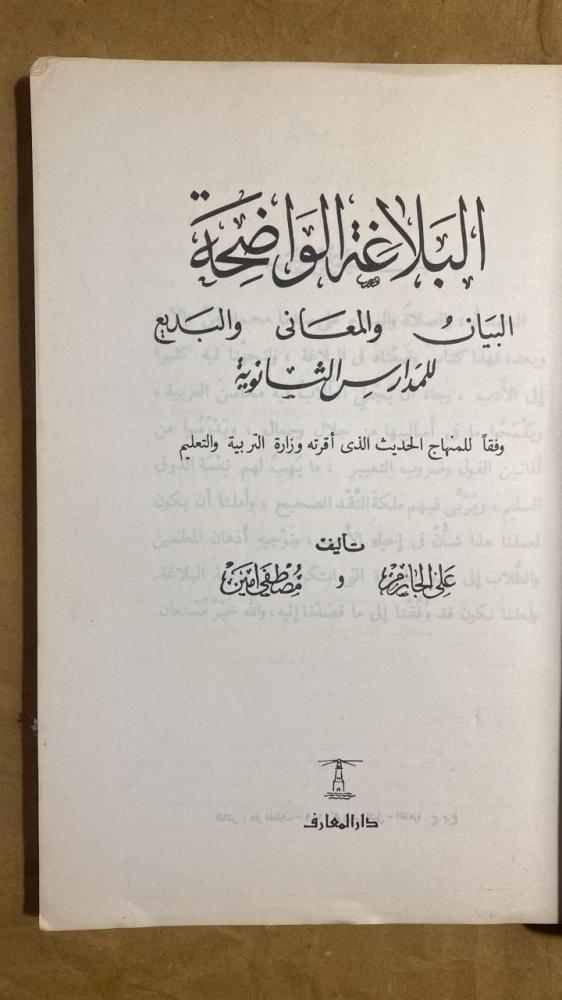 البَلاغة الوَاضِحَة
البيَانُ والمعَانى والبَديع
للمدَارسِ الثَانوية
وفقاً للمنهاج الحديث الذى أقرته وزارة التربية والتعليم
تأليف
عَلى الجَارم و مُصْطفى أمين
دار المعارف